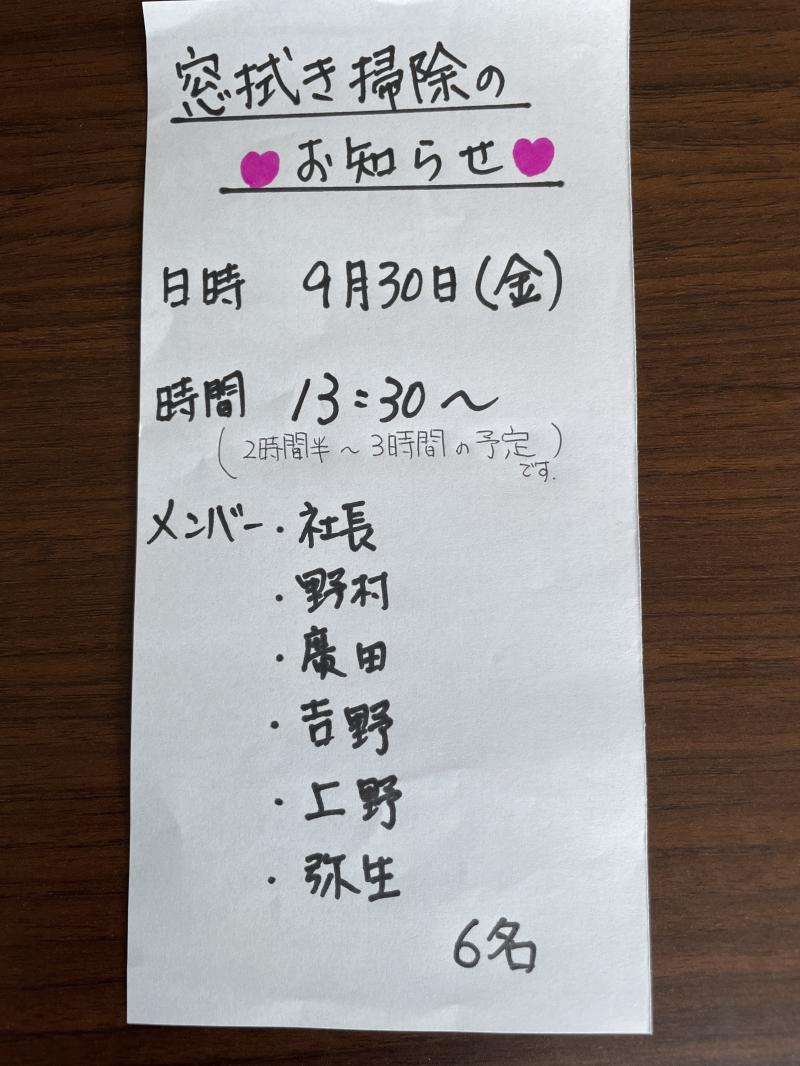 窓拭き掃除の
お知らせ
日時 9月30日(金)
時間 13:30〜
(2時間半〜3時間の予定です.)
メンバー・社長
・野村
・廣田
・吉野
・上野
・弥生
6名